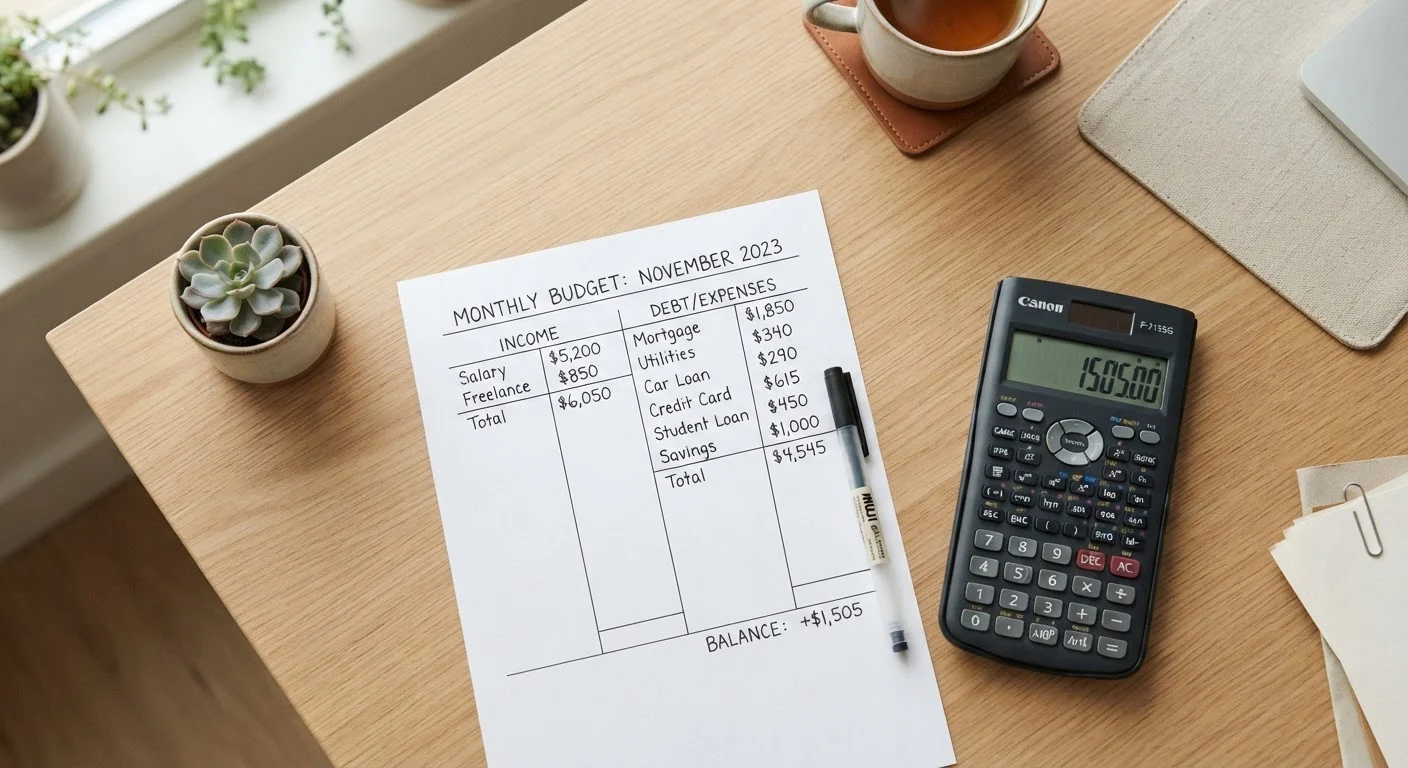 MONTHLY BUDGET: NOVEMBER 2023
INCOME
Salary $5,200
Freelance $850
Total $6,050
DEBT/EXPENSES
Mortgage $1,850
Utilities $340
Car Loan $290
Credit Card $615
Student Loan $450
Savings $1,000
Total $4,545
BALANCE: +$1,505
Canon
1505.00
7 8 9 DEC AC
4 5 6 × ÷
1 2 3 + −
0 . =